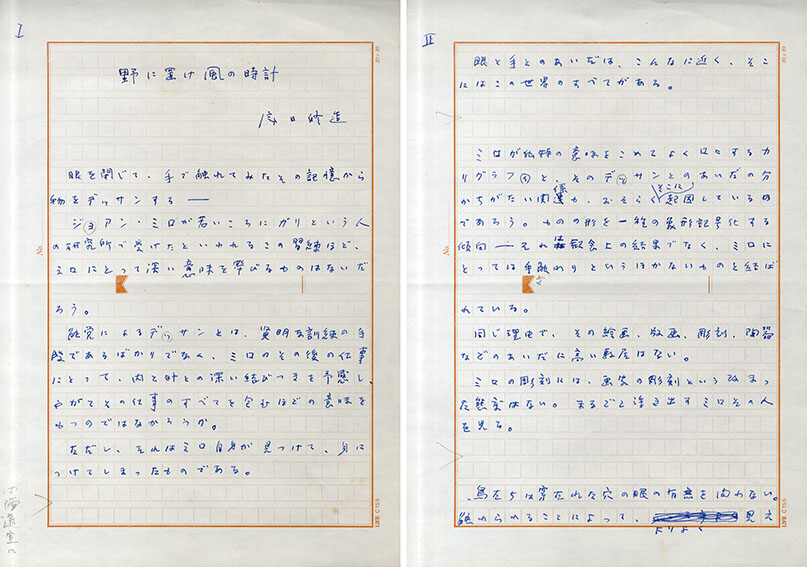 I
野に置け風の時計
瀧口修造
眼を閉じて、手で触れてみたその記憶から
物をデッサンする——
ジョアン・ミロが若いころにガリという人
の研究所で受けたといわれるこの習練ほど、
ミロにとって深い意味を帯びるものはないだ
ろう。
触覚によるデッサンとは、賢明な訓練の手
段であるばかりでなく、ミロのその後の仕事
にとって、内と外との深い結びつきを予感し、
やがてその仕事のすべてを含むほどの意味を
もつのではなかろうか。
ただし、それはミロ自身が見つけて、身に
つけてしまったものである。
No.
20×20
LIFE C155
II
眼と手とのあいだは、こんなに近く、そこ
にはこの世界のすべてがある。
ミロが独特の意味をこめてよく口にするカ
リグラフィと、そのデッサンとのあいだの分
かちがたい関係も、おそらくそこに起因しているの
であろう。ものの形を一種の象形記号化する
傾向——それは 上の結果でなく、ミロに
とっては手触わりというほかないものと結ば
れている。
同じ理由で、その絵画、版画、彫刻、陶器
などのあいだに高い転居はない。
ミロの彫刻には、画家の彫刻という改まっ
た態度はない。まるごと浮き出すミロその人
を見る。
鳥たちは穿たれた穴の眼の有無を問わない。
触れられることによって、よりよく見え
No.
20×20
LIFE C155